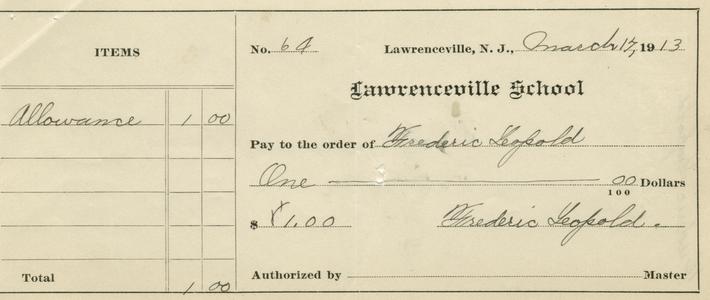 ITEMS
Allowance 1 00
Total 1 00
No. 64 Lawrenceville, N. J., March 17, 1913
Lawrenceville School
Pay to the order of Frederic Leopold
One 00/100 Dollars
$ 1.00 Frederic Leopold.
Authorized by Master